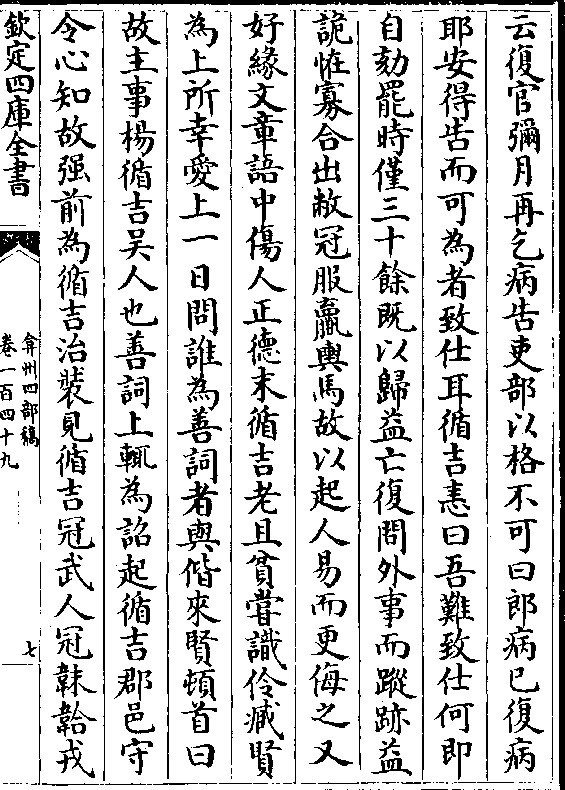 云復官彌月再乞病告吏部以格不可曰郎病已復病
耶安得告而可為者致仕耳循吉恚曰吾難致仕何即
自劾罷時僅三十餘既以歸益亡復問外事而蹤跡益
詭恠寡合出敝冠服羸輿馬故以起人易而更侮之又
好緣文章語中傷人正德末循吉老且貧嘗識伶臧賢
為上所幸愛上一日問誰為善詞者與偕來賢頓首曰
故主事楊循吉吳人也善詞上輒為詔起循吉郡邑守
令心知故强前為循吉治裝見循吉冠武人冠韎韐戎
欽定四庫全書
弇州四部稿
卷一百四十九
七